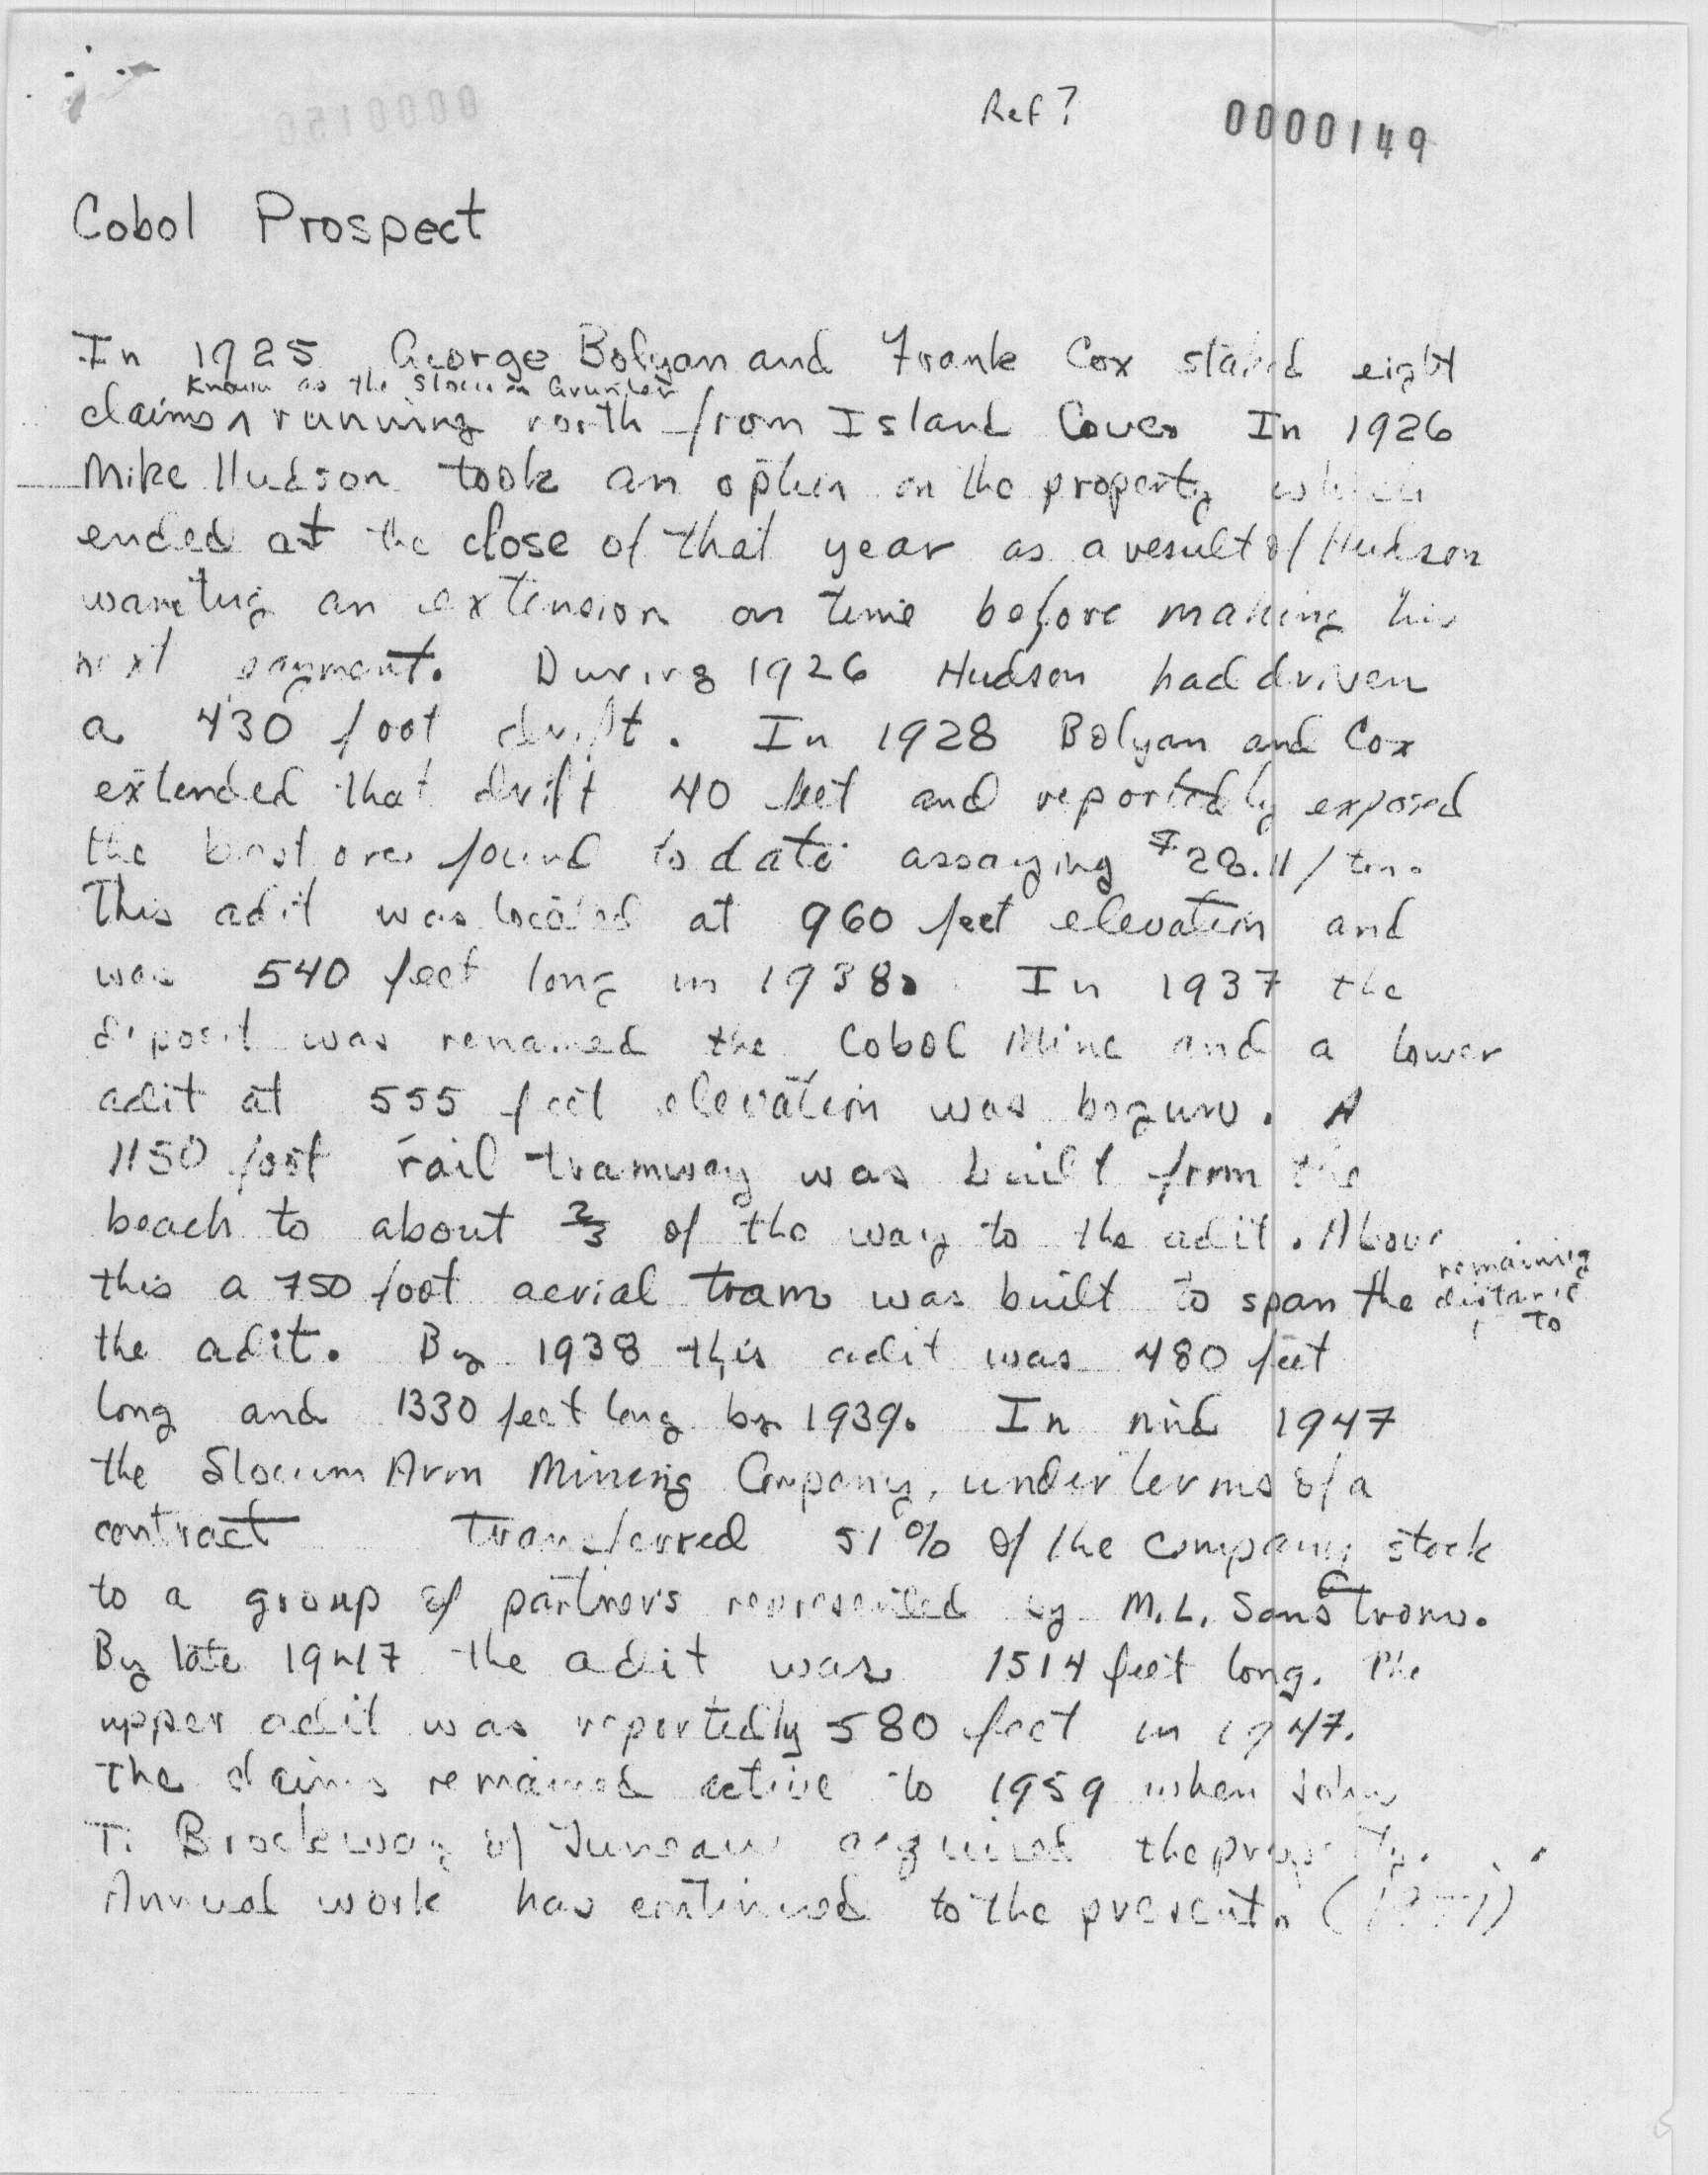 Ref?
0000149
Cobol Prospect
In 1925 George Bolyan and Frank Cox staked eight
Known as the Slocum
claims ^ running north from Island Cove. In 1926
Mike Hudson took an option on the property which
ended at the close of that year as a result of Hudson
wanting an extension on time before making his
next payment. During 1926 Hudson had driven
a 430 foot drift. In 1928 Bolyan and Cox
extended that drift 40 feet and reportedly exposed
the best ore found to date assaying $28.11/ton.
This adit was located at 960 feet elevation and
was 540 feet long in 1938. In 1937 the
deposit was renamed the Cobol Mine and a lower
adit at 555 feet elevation was begun. A
1150 foot rail tramway was built from the
beach to about 2/3 of the way to the adit. Above
this a 750 foot aerial tram was built to span the remaining distance to
the adit. By 1938 this adit was 480 feet
long and 1330 feet long by 1939. In mid 1947
the Slocum Arm Mining Company, under terms of a
contract transferred 51% of the company stock
to a group of partners represented by M.L. Sandstrom.
By late 1947 the adit was 1514 feet long. The
upper adit was reportedly 580 feet in 1947.
The claims remained active to 1959 when John
T. Brockway of Juneau acquired the property.
Annual work has continued to the present.